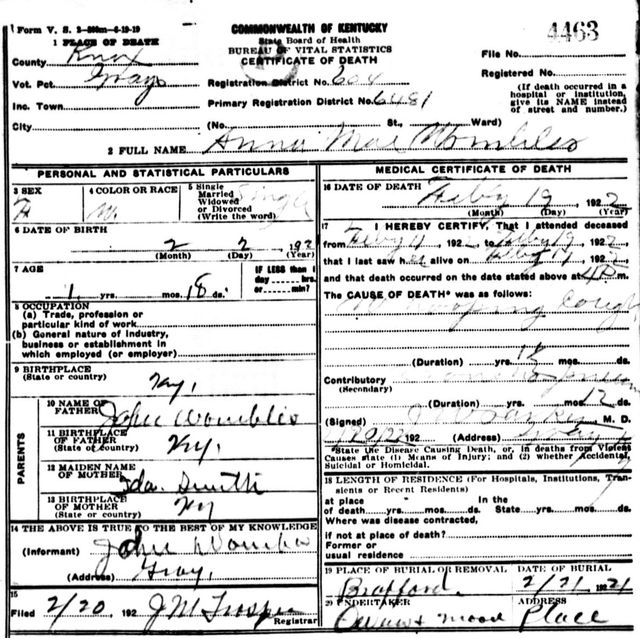 Form V. S.
COMMONWEALTH OF KENTUCKY
State Board of Health
BUREAU OF VITAL STATISTICS
CERTIFICATE OF DEATH
4463
1 PLACE OF DEATH
County Knox
Vot. Pct. Grays
Inc. Town
City
Registration District No. 604
Primary Registration District No. 6481
(No. St., Ward)
File No.
Registered No.
(If death occurred in a
hospital or institution,
give its NAME instead
of street and number.)
2 FULL NAME Anna Mae Wombles
PERSONAL AND STATISTICAL PARTICULARS
3 SEX
F
4 COLOR OR RACE
W.
5 Single
Married
Widowed
or Divorced
(Write the word)
Single
6 DATE OF BIRTH
2 2 192
(Month) (Day) (Year)
7 AGE
1 yrs. mos. 18 ds.
IF LESS than 1
day hrs.
or min?
8 OCCUPATION
(a) Trade, profession or
particular kind of work
(b) General nature of industry,
business or establishment in
which employed (or employer)
9 BIRTHPLACE
(State or country)
Ky.
PARENTS
10 NAME OF
FATHER
John Wombles
11 BIRTHPLACE
OF FATHER
(State or country)
Ky.
12 MAIDEN NAME
OF MOTHER
Ida Smith
13 BIRTHPLACE
OF MOTHER
(State or country)
Ky
14 THE ABOVE IS TRUE TO THE BEST OF MY KNOWLEDGE
(Informant) John Wombles
(Address) Gray,
15
Filed 2/20 192 J M Trosper
Registrar
MEDICAL CERTIFICATE OF DEATH
16 DATE OF DEATH
Febry 19, 1922
(Month) (Day) (Year)
17 I HEREBY CERTIFY, That I attended deceased
from Febry 192 to Febry 19, 192
that I last saw her alive on Febry 192
and that death occurred on the date stated above at 4 P m.
The CAUSE OF DEATH* was as follows:
Whooping Cough
(Duration) yrs. mos. ds.
Contributory
(Secondary)
(Duration) yrs. mos. 12 ds.
(Signed) M. D.
192 (Address)
*State the Disease Causing Death, or, in deaths from Violent
Causes state (1) Means of Injury; and (2) whether Accidental,
Suicidal or Homicidal.
18 LENGTH OF RESIDENCE (For Hospitals, Institutions, Tran-
sients or Recent Residents)
at place In the
of death yrs. mos. ds. State yrs. mos. ds.
Where was disease contracted,
if not at place of death?
Former or
usual residence
19 PLACE OF BURIAL OR REMOVAL
Brafford.
DATE OF BURIAL
2/21, 1921
20 UNDERTAKER
ADDRESS
Place